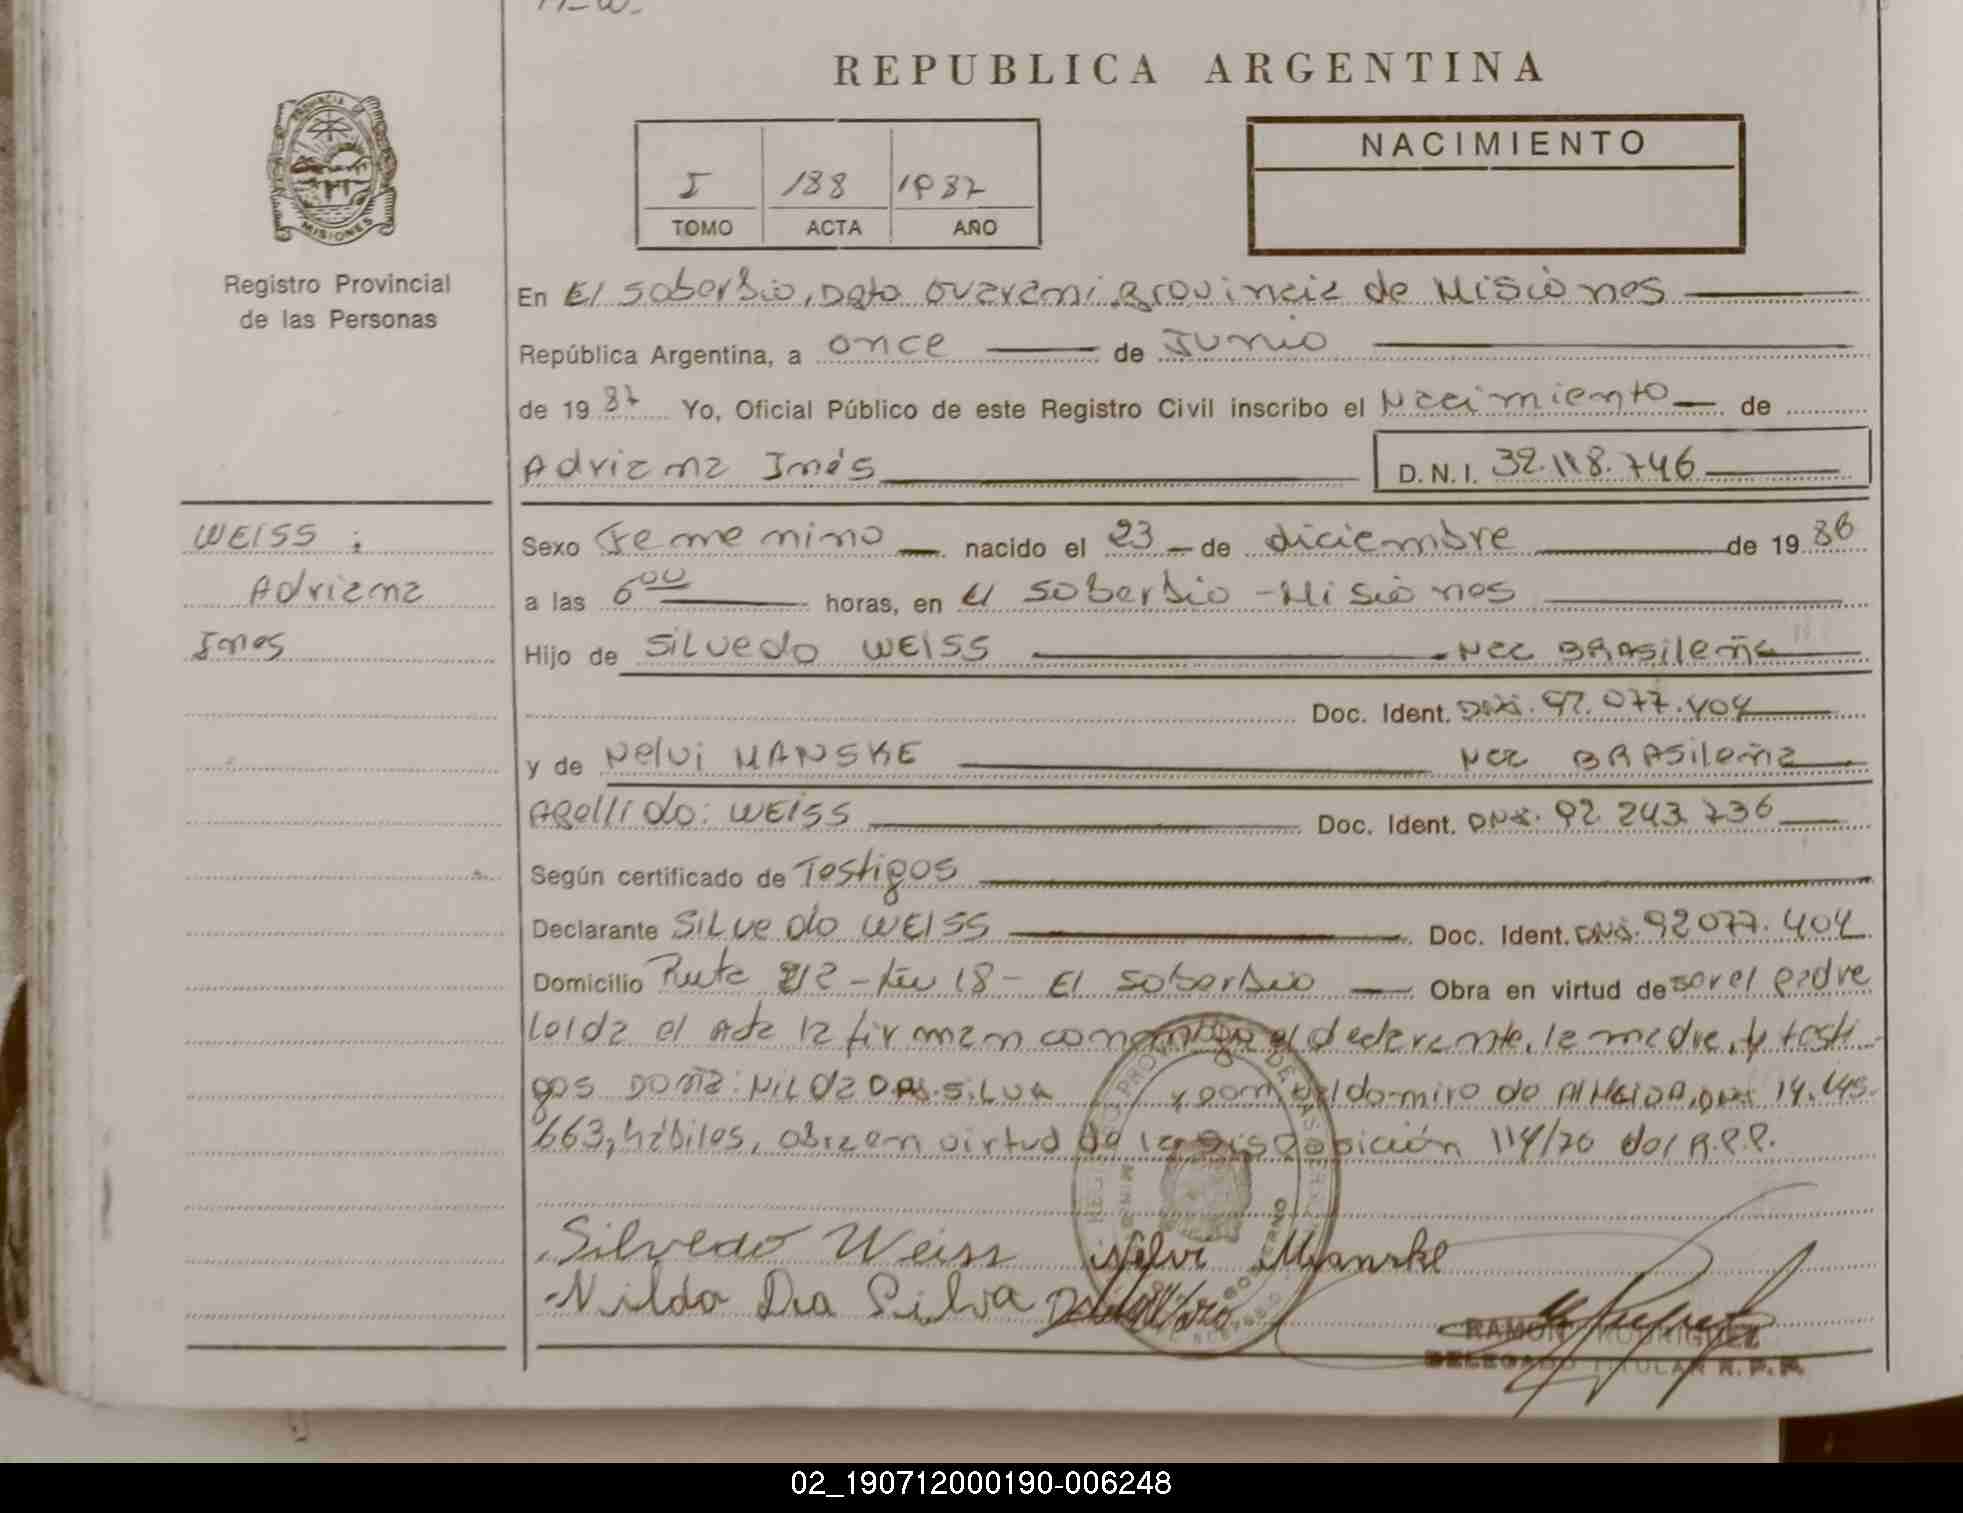 REPUBLICA ARGENTINA
PROVINCIA DE
MISIONES
Registro Provincial
de las Personas
I 188 1987
TOMO ACTA AÑO
NACIMIENTO
En El soberbio, Dpto Guarani, provincia de Misiones
República Argentina, a once de Junio
de 1987 Yo, Oficial Público de este Registro Civil inscribo el Nacimiento de
Adriana Inés D.N.I. 32.118.746
WEISS:
Adriana
Ines
Sexo Femenino nacido el 23 de diciembre de 1986
a las 6 00 horas, en El soberbio - Misiones
Hijo de SILVEDO WEISS Nac BRASileña
Doc. Ident. DNI. 92.077.404
y de Nelvi MANSKE Nac BRASileña
Apellido: WEISS Doc. Ident. DNI. 92 243.736
Según certificado de Testigos
Declarante SILVEDO WEISS Doc. Ident. DNI. 92 077.404
Domicilio Ruta 212 - km 18 - El soberbio Obra en virtud de ser el padre
Leida el Acta la firman conmigo el declarante, la madre, y testi-
gos Doña: NILDA DA SILVA y don Valdomiro de AlMEIDA, DNI 14.145.
663, hábiles, obra en virtud de la disposición 114/70 del R.P.P.
Silvedo Weiss Nelvi Manske
Nilda Da Silva
RAMON RODRIGUEZ
DELEGADO TITULAR R.P.P.
02_190712000190-006248